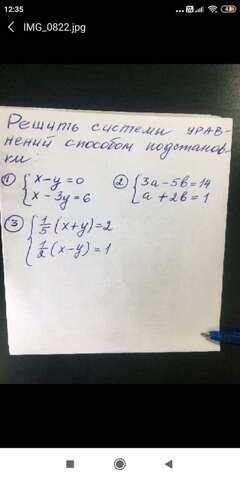 12:35
IMG_0822.jpg
Решить системы урав-
нений способом подстанов-
ки:
① { x - y = 0
x - 3y = 6
② { 3a - 5b = 14
a + 2b = 1
③ { 1/5 (x+y) = 2
1/2 (x-y) = 1